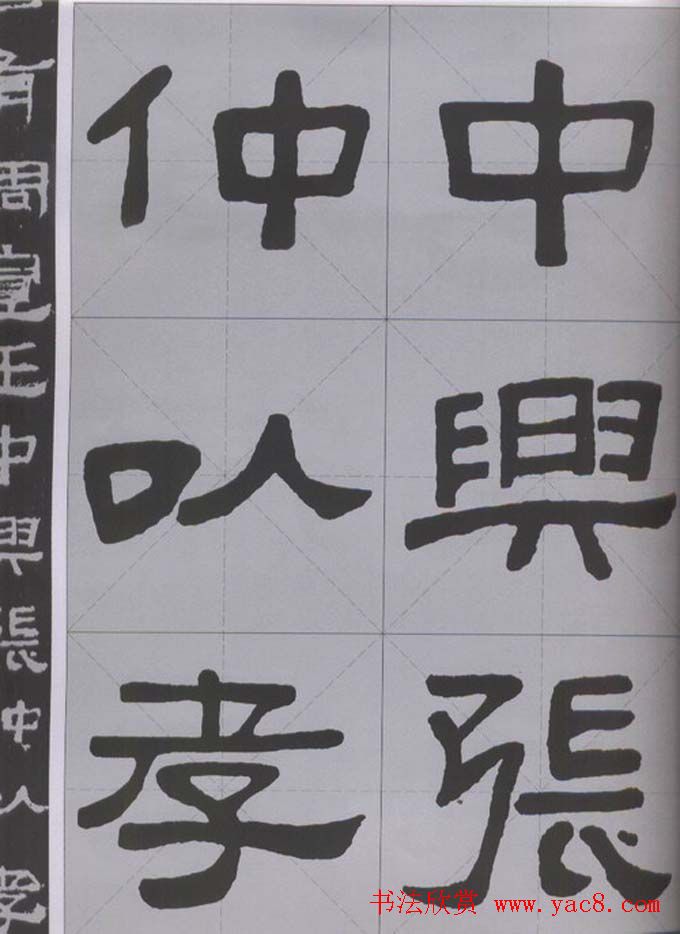 中興張
仲以孝
有周宣王中興張仲以孝
书法欣赏 www.yac8.com